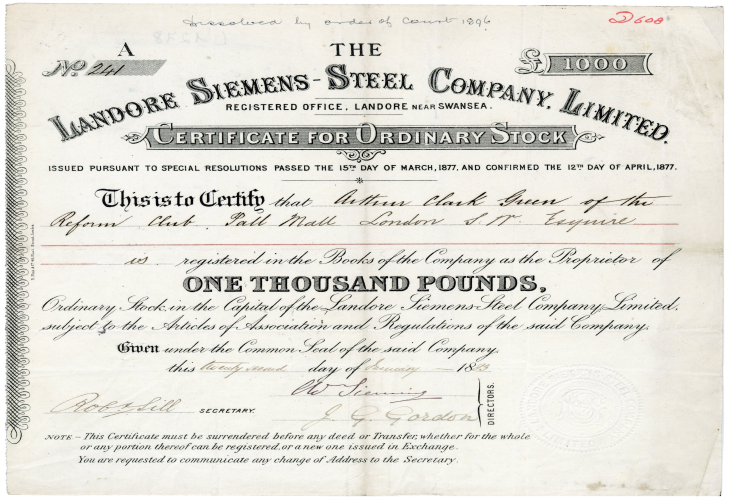 Dissolved by order of Court 1896
D608
A
THE
No. 241
£ 1000
LANDORE SIEMENS-STEEL COMPANY, LIMITED.
REGISTERED OFFICE, LANDORE NEAR SWANSEA.
CERTIFICATE FOR ORDINARY STOCK
ISSUED PURSUANT TO SPECIAL RESOLUTIONS PASSED THE 15TH DAY OF MARCH, 1877, AND CONFIRMED THE 12TH DAY OF APRIL, 1877.
This is to Certify that Arthur Clark Green of the
Reform Club Pall Mall London S.W. Esquire
is registered in the Books of the Company as the Proprietor of
ONE THOUSAND POUNDS,
Ordinary Stock, in the Capital of the Landore Siemens-Steel Company, Limited,
subject to the Articles of Association and Regulations of the said Company.
Given under the Common Seal of the said Company,
this twenty second day of January 1883
Siemens
Robt. Sill SECRETARY.
J. G. Gordon
DIRECTORS.
NOTE – This Certificate must be surrendered before any deed or Transfer, whether for the whole
or any portion thereof can be registered, or a new one issued in Exchange.
You are requested to communicate any change of Address to the Secretary.